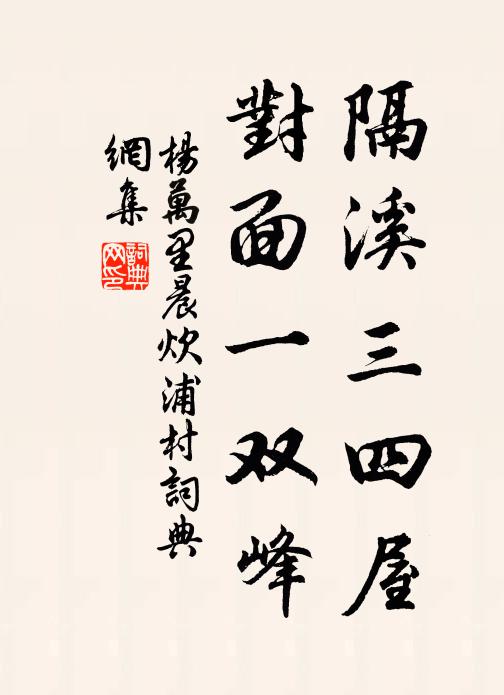 隔溪三四屋
對面一双峰
楊萬里晨炊浦村詞典
網集
詞典
网印